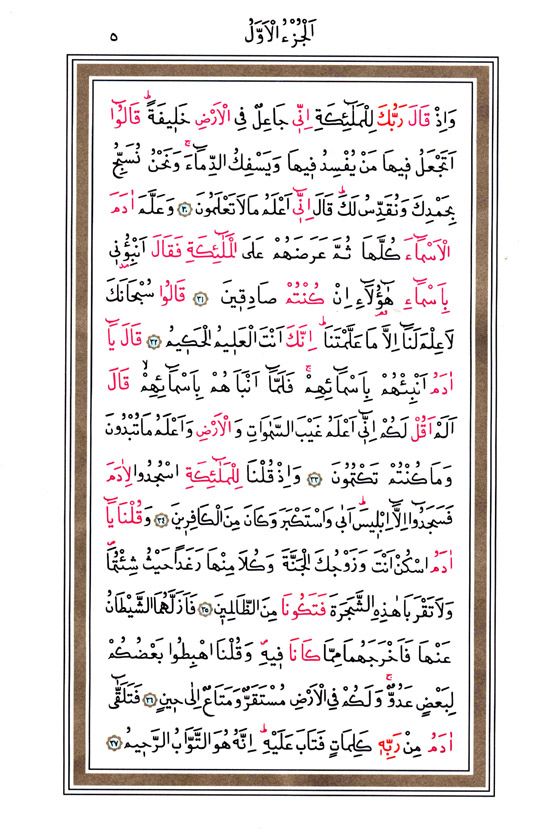 اَلْجُزْءُ الْاَوَّلُ ٥
وَاِذْ قَالَ رَبُّكَ لِلْمَلٰٓئِكَةِ اِنّ۪ي جَاعِلٌ فِي الْاَرْضِ خَل۪يفَةًۜ قَالُٓوا
اَتَجْعَلُ ف۪يهَا مَنْ يُفْسِدُ ف۪يهَا وَيَسْفِكُ الدِّمَٓاءَۚ وَنَحْنُ نُسَبِّحُ
بِحَمْدِكَ وَنُقَدِّسُ لَكَۜ قَالَ اِنّ۪ٓي اَعْلَمُ مَا لَا تَعْلَمُونَ ﴿٣٠﴾ وَعَلَّمَ اٰدَمَ
الْاَسْمَٓاءَ كُلَّهَا ثُمَّ عَرَضَهُمْ عَلَى الْمَلٰٓئِكَةِ فَقَالَ اَنْبِؤُ۫ن۪ي
بِاَسْمَٓاءِ هٰٓؤُ۬لَٓاءِ اِنْ كُنْتُمْ صَادِق۪ينَ ﴿٣١﴾ قَالُوا سُبْحَانَكَ
لَا عِلْمَ لَنَٓا اِلَّا مَا عَلَّمْتَنَاۜ اِنَّكَ اَنْتَ الْعَل۪يمُ الْحَك۪يمُ ﴿٣٢﴾ قَالَ يَٓا
اٰدَمُ اَنْبِئْهُمْ بِاَسْمَٓائِهِمْۚ فَلَمَّٓا اَنْبَاَهُمْ بِاَسْمَٓائِهِمْۙ قَالَ
اَلَمْ اَقُلْ لَكُمْ اِنّ۪ٓي اَعْلَمُ غَيْبَ السَّمٰوَاتِ وَالْاَرْضِ وَاَعْلَمُ مَا تُبْدُونَ
وَمَا كُنْتُمْ تَكْتُمُونَ ﴿٣٣﴾ وَاِذْ قُلْنَا لِلْمَلٰٓئِكَةِ اسْجُدُوا لِاٰدَمَ
فَسَجَدُٓوا اِلَّٓا اِبْل۪يسَۜ اَبٰى وَاسْتَكْبَرَ وَكَانَ مِنَ الْكَافِر۪ينَ ﴿٣٤﴾ وَقُلْنَا يَٓا
اٰدَمُ اسْكُنْ اَنْتَ وَزَوْجُكَ الْجَنَّةَ وَكُلَا مِنْهَا رَغَدًا حَيْثُ شِئْتُمَاۖ
وَلَا تَقْرَبَا هٰذِهِ الشَّجَرَةَ فَتَكُونَا مِنَ الظَّالِم۪ينَ ﴿٣٥﴾ فَاَزَلَّهُمَا الشَّيْطَانُ
عَنْهَا فَاَخْرَجَهُمَا مِمَّا كَانَا ف۪يهِۖ وَقُلْنَا اهْبِطُوا بَعْضُكُمْ
لِبَعْضٍ عَدُوٌّۚ وَلَكُمْ فِي الْاَرْضِ مُسْتَقَرٌّ وَمَتَاعٌ اِلٰى ح۪ينٍ ﴿٣٦﴾ فَتَلَقّٰٓى
اٰدَمُ مِنْ رَبِّه۪ كَلِمَاتٍ فَتَابَ عَلَيْهِۜ اِنَّهُ هُوَ التَّوَّابُ الرَّح۪يمُ ﴿٣٧﴾